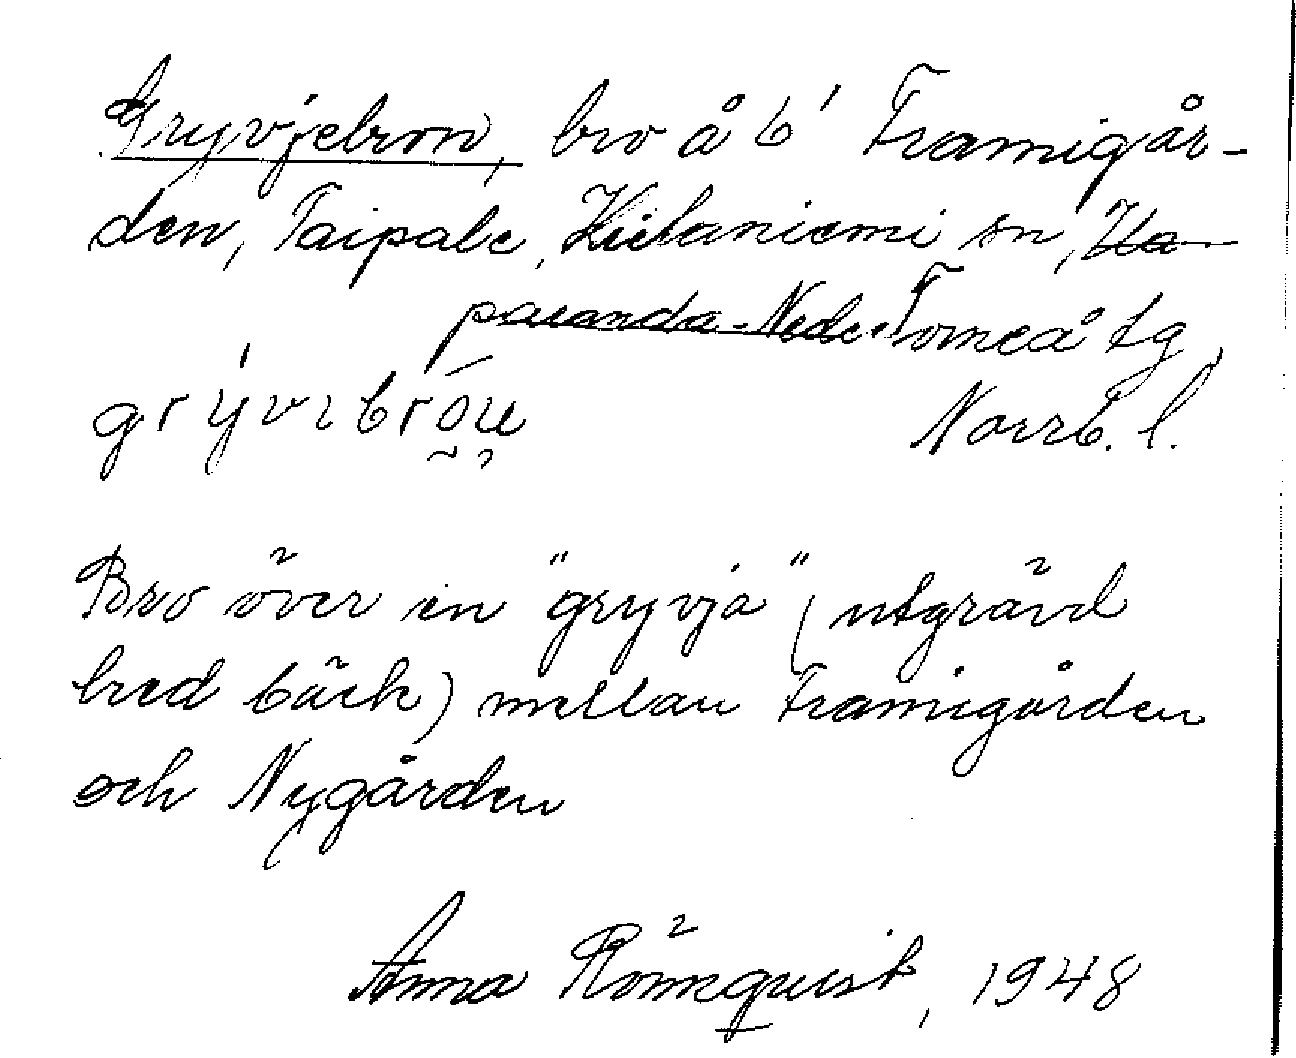 Gryvjebron, bro å b' Framigår-
den, Taipale, Kielaniemi sn, Ha-
paranda-Neder Torneå tg,
Norrb. l.
Bro över en "gryvja" (utgrävd
bred bäck) mellan Framigården
och Nygården
Anna Rönnquist, 1948